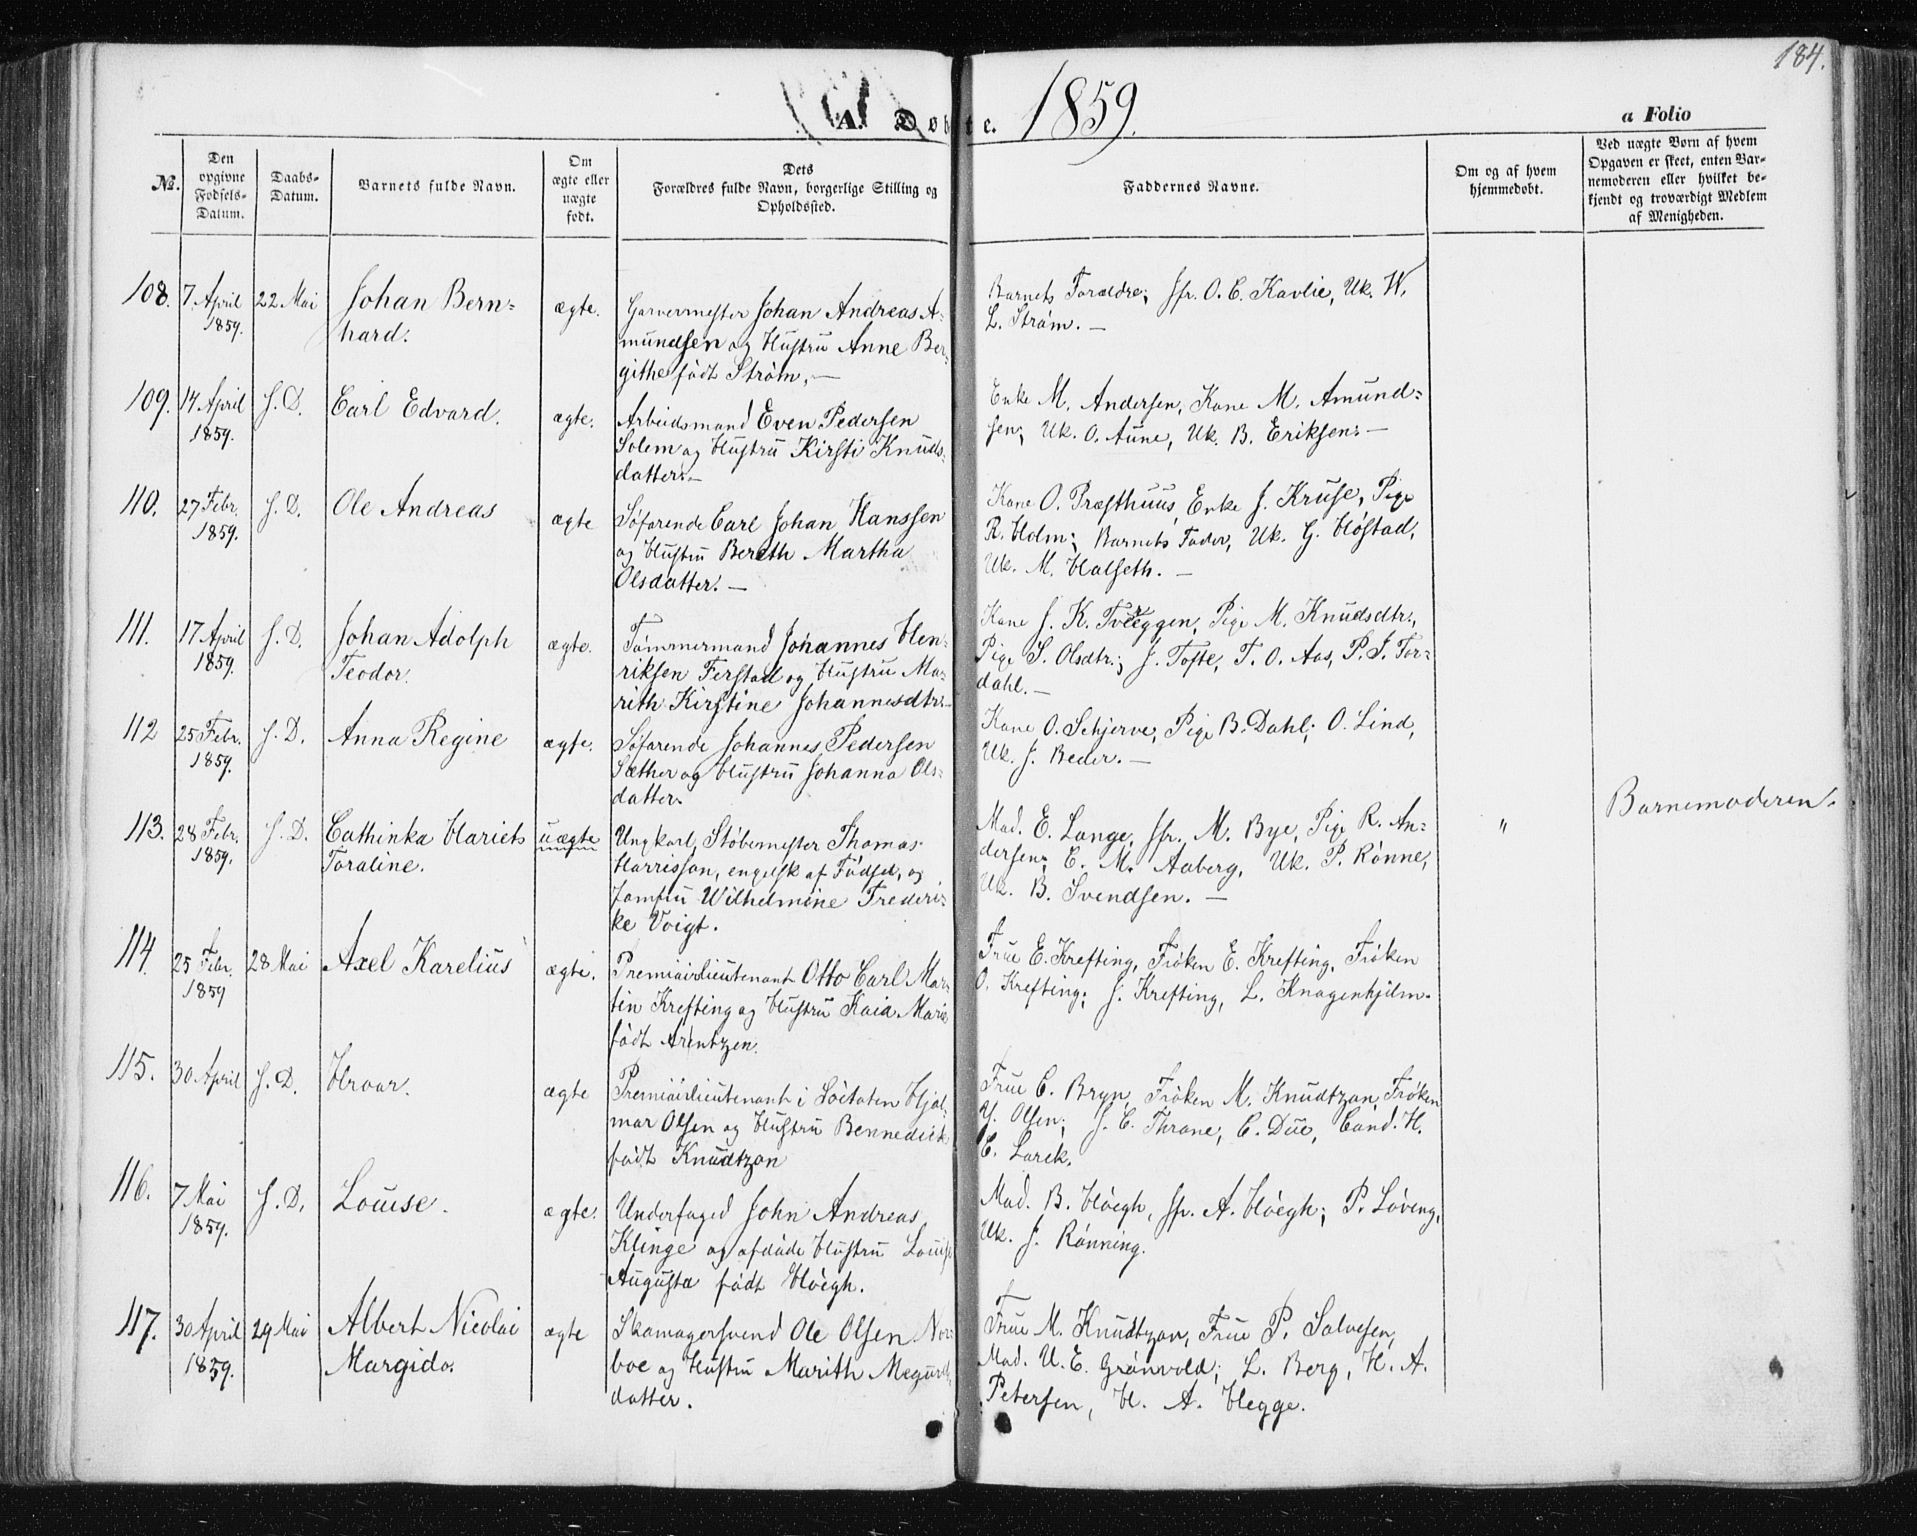 184.
A. Døbte. 1859.
a Folio
No.
Den opgivne Fødsels-Datum.
Daabs-Datum.
Barnets fulde Navn.
Om ægte eller uægte født.
Dets Forældres fulde Navn, borgerlige Stilling og Opholdssted.
Faddernes Navne.
Om og af hvem hjemmedøbt.
Ved uægte Børn af hvem Opgaven er skeet, enten Barnemoderen eller hvilket bekjendt og troværdigt Medlem af Menigheden.
108. 7 April 1859. 22 Mai Johan Bern-
hard.
ægte.
Garvermester Johan Andreas A-
mundsen og Hustru Anne Ber-
githe født Strøm. —
Barnets Forældre; Jfr. O. C. Kavlie, Uk. W.
L. Strøm. —
109. 14 April 1859. S. D. Carl Edvard.
ægte.
Arbeidsmand Even Pedersen
Solem og Hustru Kirsti Knuds-
datter. —
Enke M. Andersen, Kone M. Amund-
sen; Uk. O. Aune, Uk. B. Eriksen. —
110. 27 Febr. 1859. S. D. Ole Andreas
ægte
Søfarende Carl Johan Hanssen
og Hustru Bereth Martha
Olsdatter. —
Kone O. Præsthuus, Enke J. Kruse, Pige
R. Holm; Barnets Fader, Uk. G. Høstad,
Uk. M. Halseth. —
111. 17 April 1859. S. D. Johan Adolph
Teodor.
ægte.
Tømmermand Johannes Hen-
riksen Ferstad og Hustru Ma-
rith Kirstine Johannesdtr. —
Kone J. K. Tveeggen, Pige M. Knudsdtr.,
Pige S. Olsdtr.; J. Tofte, T. O. Aas, P. J. Tor-
dahl. —
112 25 Febr. 1859. S. D. Anna Regine
ægte.
Søfarende Johannes Pedersen
Sæther og Hustru Johanna Ols-
datter.
Kone O. Schjerve, Pige B. Dahl; O. Lind,
Uk. J. Beder. —
113. 28 Febr. 1859. S. D. Cathinka Hariets
Toraline.
uægte
Ungkarl, Støbemester Thomas
Harrisson, engelsk af Fødsel, og
Jomfru Wilhelmine Frederi-
ke Voigt.
Mad. E. Lange, Jfr. M. Bye, Pige R. An-
dersen; E. M. Aaberg, Uk. P. Rønne,
Uk. B. Svendsen. —
"
Barnemoderen.
114. 25 Febr. 1859 28 Mai Axel Karelius
ægte.
Premiairlieutenant Otto Carl Mar-
tin Krefting og Hustru Kaia Marie
født Arentzen.
Frue E. Krefting, Frøken E. Krefting, Frøken
O. Krefting; J. Krefting, L. Knagenhjelm.
115. 30 April S. D. Hroar.
ægte
Premiairlieutenant i Søetaten Hjal-
mar Olsen og Hustru Bennedick
født Knudtzon
Frue C. Bryn, Frøken M. Knudtzon, Frøken
Y. Olsen; J. C. Thrane, C. Due, Cand. H.
C. Lorck.
116. 7 Mai 1859. S. D. Louise.
ægte.
Underfoged John Andreas
Klinge og afdøde Hustru Louise
Augusta født Høegh.
Mad. B. Høegh, Jfr. A. Høegh; P. Løveng,
Uk. J. Rønning.
117. 30 April 1859. 29 Mai Albert Nicolai
Margido.
ægte
Skomagersvend Ole Olsen Nor-
boe og Hustru Marith Megurds-
datter.
Frue M. Knudtzon, Frue P. Salvesen,
Mad. U. E. Grønvold; L. Berg, H. A.
Petersen, H. A. Hegge.